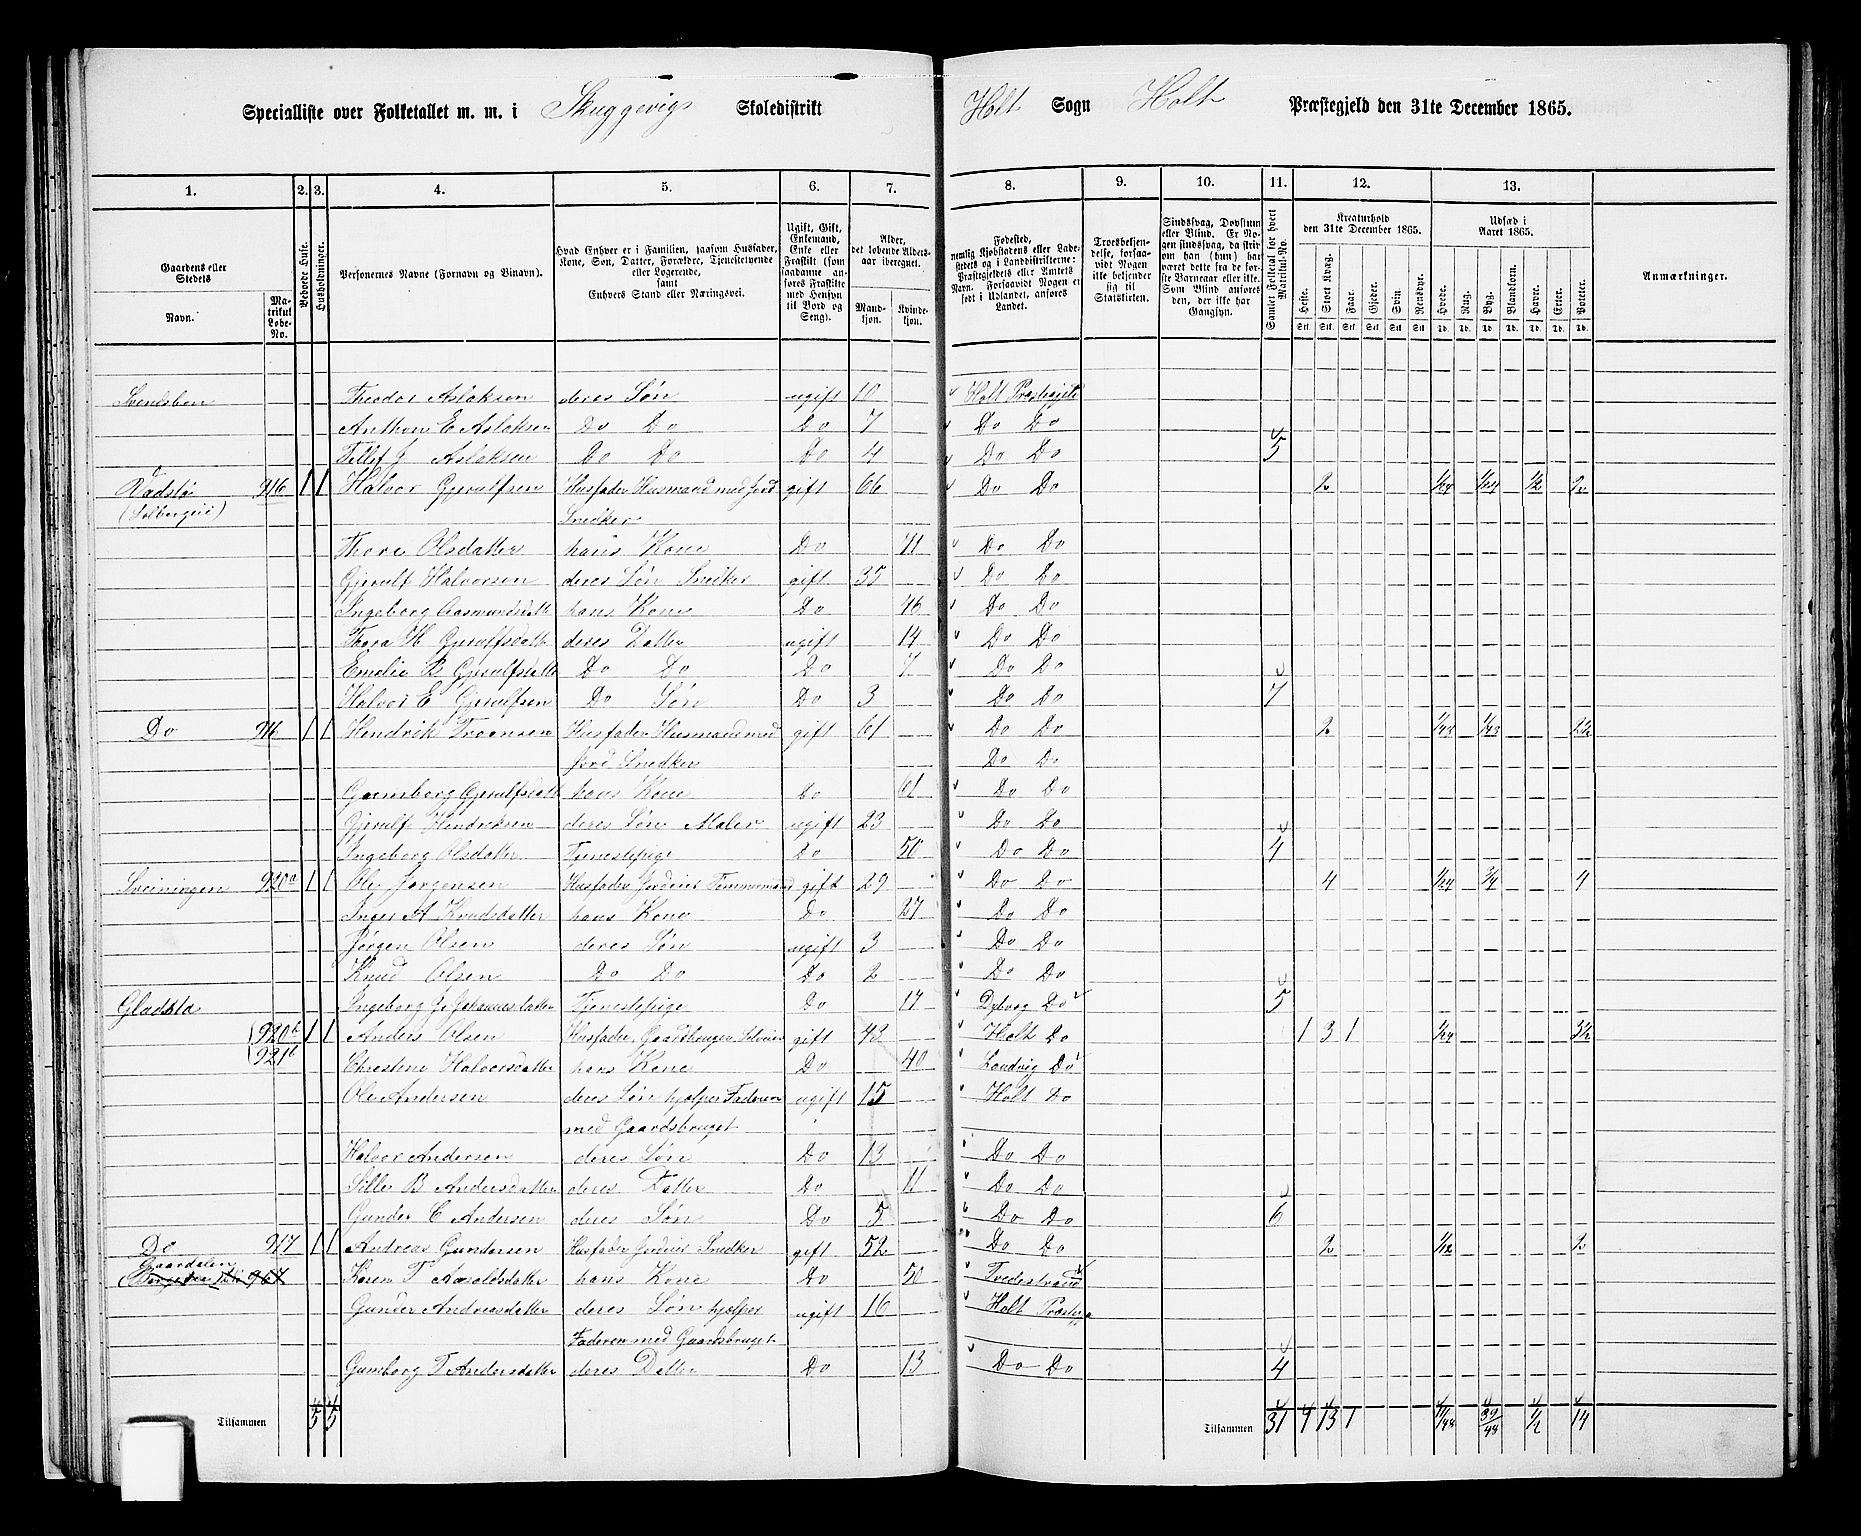 Specialliste over Folketallet m. m. i Skuggevigs Skoledistrikt Holt Sogn Holt Præstegjeld den 31te December 1865.
1. 2. 3. 4. 5. 6. 7. 8. 9. 10. 11. 12. 13.
Gaardens eller Stedets
Navn.
Matrikul Løbe-No.
Beboede Huse.
Husholdninger.
Personernes Navne (Fornavn og Binavn).
Hvad Enhver er i Familien, saasom Husfader, Kone, Søn, Datter, Forældre, Tjenestetyende eller Logerende, samt Enhvers Stand eller Næringsvei.
Ugift, Gift, Enkemand, Enke eller Fraskilt (som saadanne anføres Fraskilte med Hensyn til Bord og Seng).
Alder, det løbende Alders-aar iberegnet.
Mandkjøn. Kvindekjøn.
Fødested, nemlig Kjøbstadens eller Ladestedets og i Landdistrikterne: Præstegjeldets eller Amtets Navn. Forsaavidt Nogen er født i Udlandet, anføres Landet.
Troesbekjendelse, forsaavidt Nogen ikke bekjender sig til Statskirken.
Sindssvag, Døvstum eller Blind. Er Nogen sindssvag, da skriv om han (hun) har været dette fra de første Barneaar eller ikke. Som Blind anføres den, der ikke har Gangsyn.
Samlet Folketal for hvert Matrikul-No.
Kreaturhold den 31te December 1865.
Heste. Stort Kvæg. Faar. Gjeder. Svin. Rensdyr.
Udsæd i Aaret 1865.
Hvede. Rug. Byg. Blandkorn. Havre. Erter. Poteter.
Anmærkninger.
Stk. Stk. Stk. Stk. Stk. Stk. Td. Td. Td. Td. Td. Td. Td.
Svendsben Theodor Aslaksen deres Søn ugift 10 Holt Præstegjeld
Anthon E Aslaksen Do Do Do 7 Do Do
Tellef J Aslaksen Do Do Do 4 Do Do 5
Rødslø 916 1 1 Halvor Gjerulfsen Husfader Husmand med Jord gift 66 Do Do 2 1/24 1/24 1/2 2
(Solbergeie) Snedker
Thore Olsdatter hans Kone Do 71 Do Do
Gjerulf Halvorsen deres Søn Snedker gift 35 Do Do
Ingeborg Aasmundsdatt hans Kone Do 46 Do Do
Thora H Gjerulfsdatt deres Datter ugift 14 Do Do
Emelie B Gjerulfsdatt Do Do Do 7 Do Do
Halvor E Gjerulfsen Do Søn Do 3 Do Do 7
Do 916 1 1 Hendrik Troensen Husfader Husmand med gift 61 Do Do 2 1/48 1/48 2½
Jord Snedker Do Do
Gunborg Gjerulfsdatt hans Kone Do 61 Do Do
Gjerulf Hendriksen deres Søn Maler ugift 23 Do Do
Ingeborg Olsdatter Tjenestepige Do 50 Do Do 4
Sveiningen 920a 1 1 Ole Jørgensen Husfader Jordeier Tømmermand gift 29 Do Do 4 1/24 3/4 4
Inger A Knudsdatter hans Kone Do 27 Do Do
Jørgen Olsen deres Søn ugift 3 Do Do
Knud Olsen Do Do Do 2 Do Do
Gladstø Ingeborg J. Johannesdatter Tjenestepige Do 17 Dybvog Do 5
920b 1 1 Anders Olsen Husfader, Gaardbruger Selveier gift 42 Holt Do 1 3 1 1/24 3½
921b Christene Halvorsdatter hans Kone Do 40 Landvig Do
Ole Andersen deres Søn hjelper Faderen ugift 15 Holt Do
med Gaardsbruget
Halvor Andersen deres Søn Do 13 Do Do
Sille B Andersdatter deres Datter Do 11 Do Do
Gunder C Andersen deres Søn Do 5 Do Do 6
Do 917 1 1 Andreas Gundersen Husfader Jordeier Snedker gift 52 Do Do 2 1/12 2
Gaardalen
967 Karen T Aasoldsdatter hans Kone Do 50 Tvedestrand
Gunder Andreasdatter deres Søn hjelper ugift 16 Holt Præstegj
Faderen med Gaardsbruget
Gunborg T Andersdatter deres Datter Do 13 Do Do 4
Tilsammen 5 5 Tilsammen 31 4 13 1 11/48 39/48 1/2 14